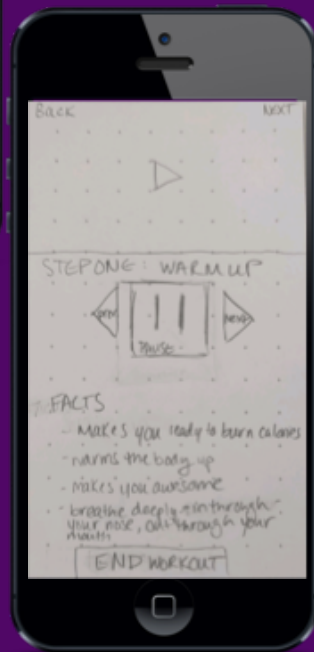 BACK NEXT
STEP ONE: WARM UP
PREV
NEXT
PAUSE
FACTS
- Makes you ready to burn calories
- warms the body up
- makes you awesome
- breathe deeply in through
your nose, out through your
mouth
END WORKOUT